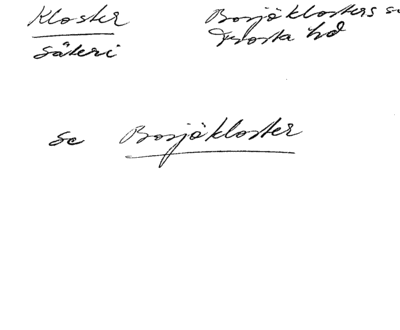 Kloster
säteri
Bosjöklosters s
Frosta hd
se Bosjökloster